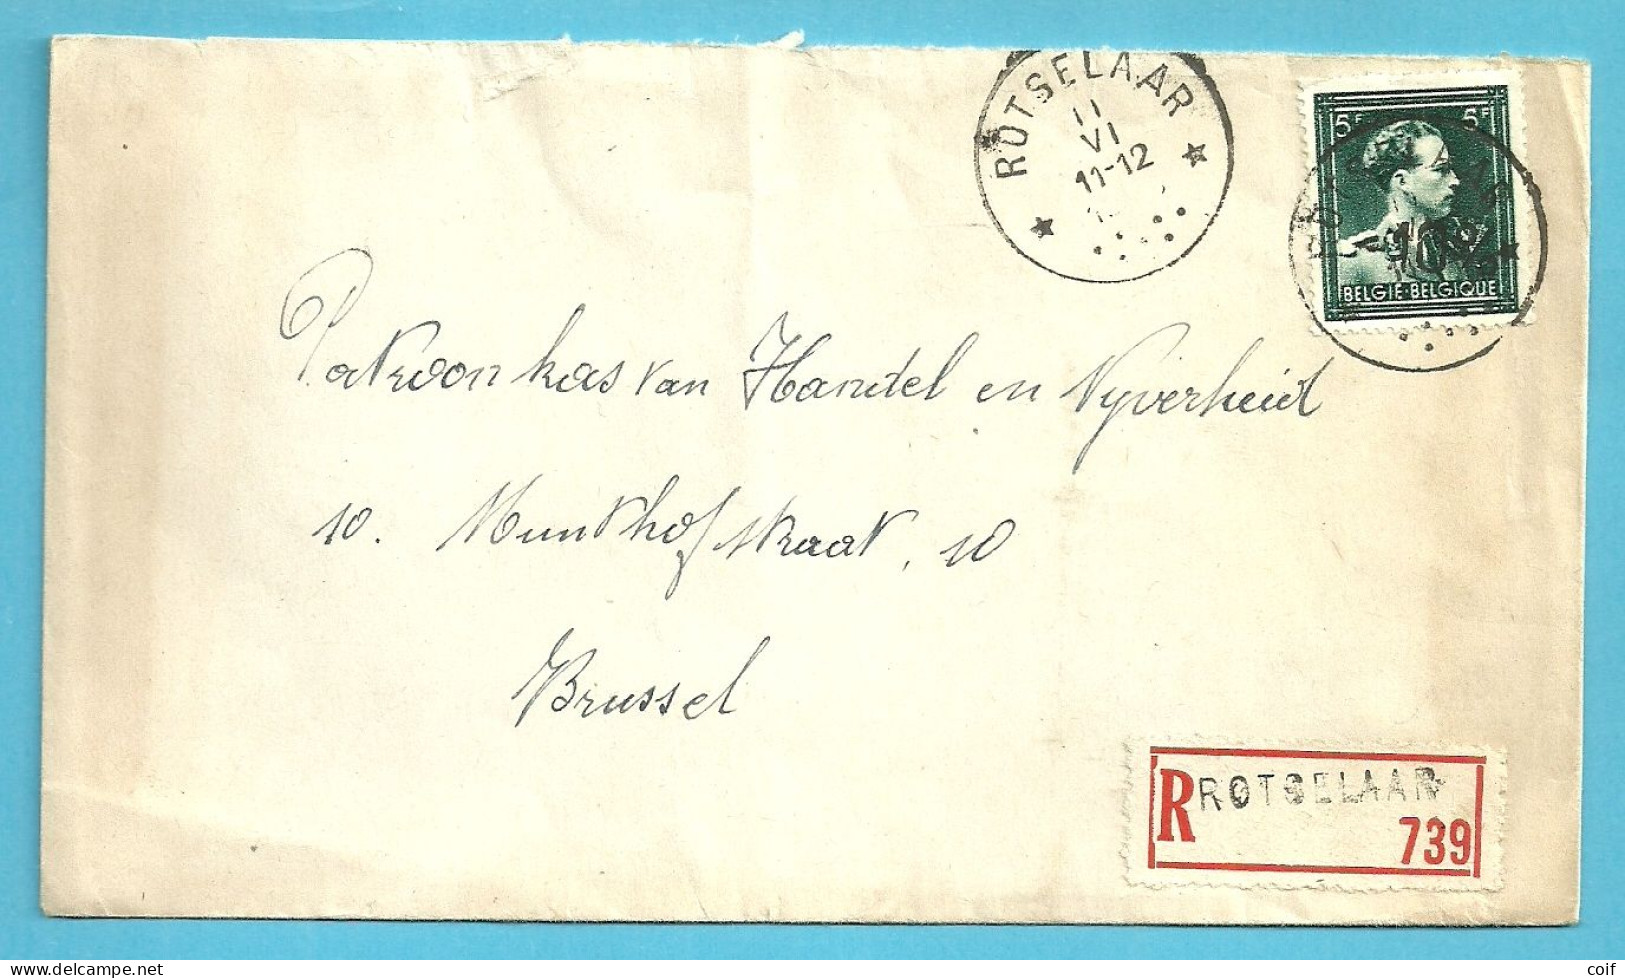 ROTSELAAR
11
VI
11-12
5F 5F
BELGIE·BELGIQUE
Patroonkas van Handel en Nyverheid
10. Munthofstraat, 10
Brussel
R ROTSELAAR
739
delcampe.net
coif